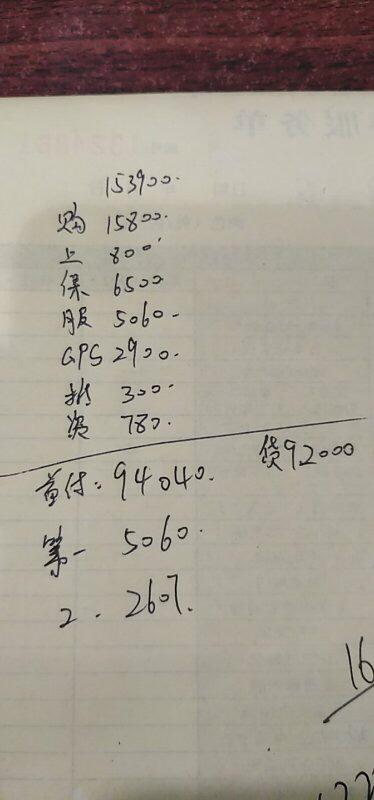 153900.
购 15800.
上 800.
保 6500
服 5060.
GPS 2900.
300.
资 780.
首付: 94040. 贷92000
第一 5060.
2. 2607.
16